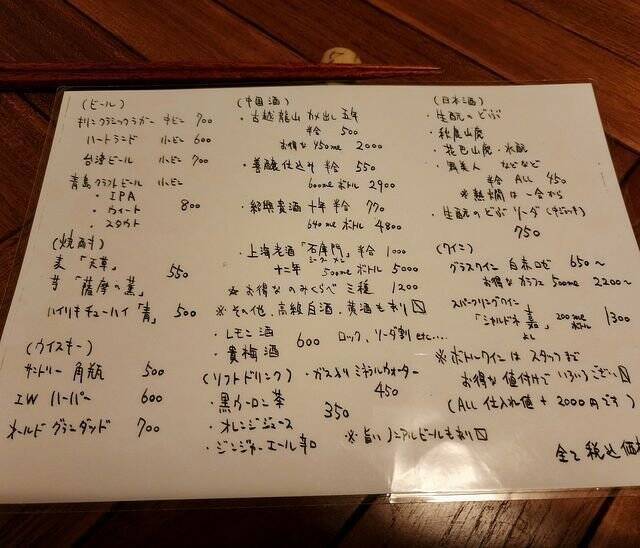 (ビール)
キリンクラシックラガー 中ビン 700
ハートランド 小ビン 600
台湾ビール 小ビン 700
青島クラフトビール 小ビン
・IPA
・ウィート 800
・スタウト
(焼酎)
麦「天草」
550
芋「薩摩の薫」
ハイリキチューハイ「青」 500
(ウイスキー)
サントリー 角瓶 500
I.W ハーパー 600
オールド グランダッド 700
(中国酒)
・古越龍山 カメ出し 五年
半合 500
お得な 450ml 2000
・善醸仕込み 半合 550
600ml ボトル 2900
・紹興貴酒 十年 半合 770
640ml ボトル 4800
・上海老酒「石庫門」半合 1000
シークーメン
十二年 500ml ボトル 5000
※お得な のみくらべ 三種 1200
※その他、高級白酒、黄酒も有り〼
・レモン酒
600 ロック、ソーダ割 etc...
・貴梅酒
(ソフトドリンク) ・ガス入り ミネラルウォーター
450
・黒ウーロン茶
350
・オレンジジュース
・ジンジャーエール辛口 ※旨いノンアルビールも有り〼
(日本酒)
・生酛のどぶ
・秋鹿山廃
・花巴山廃・水酛
・舞美人 などなど
半合 ALL 450
※熱燗は一合から
・生酛のどぶ ソーダ
750
(ワイン)
グラスワイン 白赤ロゼ 650〜
お得な カラフェ 500ml 2200〜
スパークリングワイン
「シャルドネ 嘉」 200ml ボトル 1300
よし
※ボトルワインは スタッフまで
お得な値付けで いろいろござい〼
(ALL 仕入れ値 + 2000円です)
全て税込価格